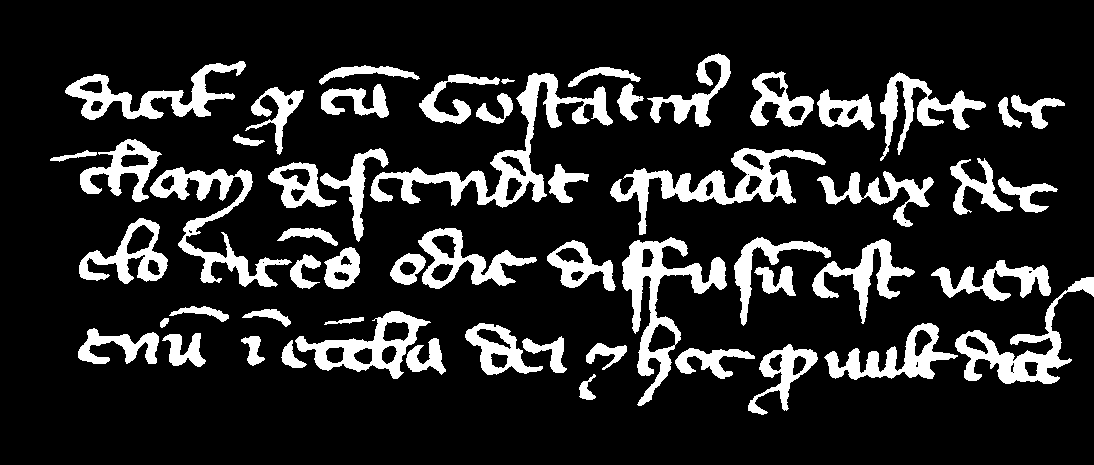 dicit̄ ꝙ cū Gōstātinꝰ dotasset ec
cl̄iam descendit quadā uox de c
elo dicēs odie diffusū est uen
enū ī eccl̄ia dei ⁊ hoc ꝙ uult dicē